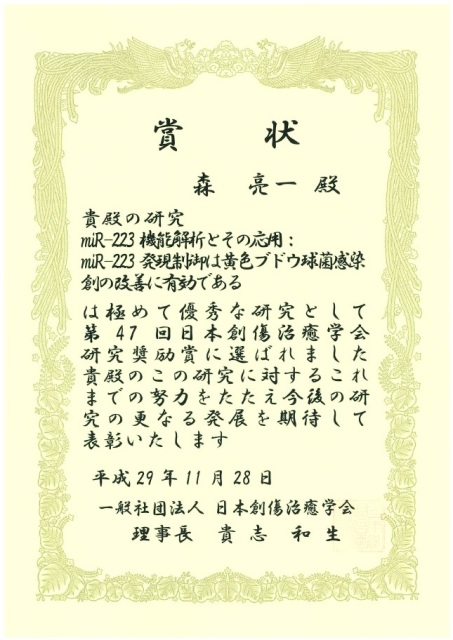 賞状
森 亮一 殿
貴殿の研究
miR-223 機能解析とその応用：
miR-223 発現制御は黄色ブドウ球菌感染
創の改善に有効である
は極めて優秀な研究として
第47回日本創傷治癒学会
研究奨励賞に選ばれました
貴殿のこの研究に対するこれ
までの努力をたたえ今後の研
究の更なる発展を期待して
表彰いたします
平成29年11月28日
一般社団法人 日本創傷治癒学会
理事長 貴志 和生